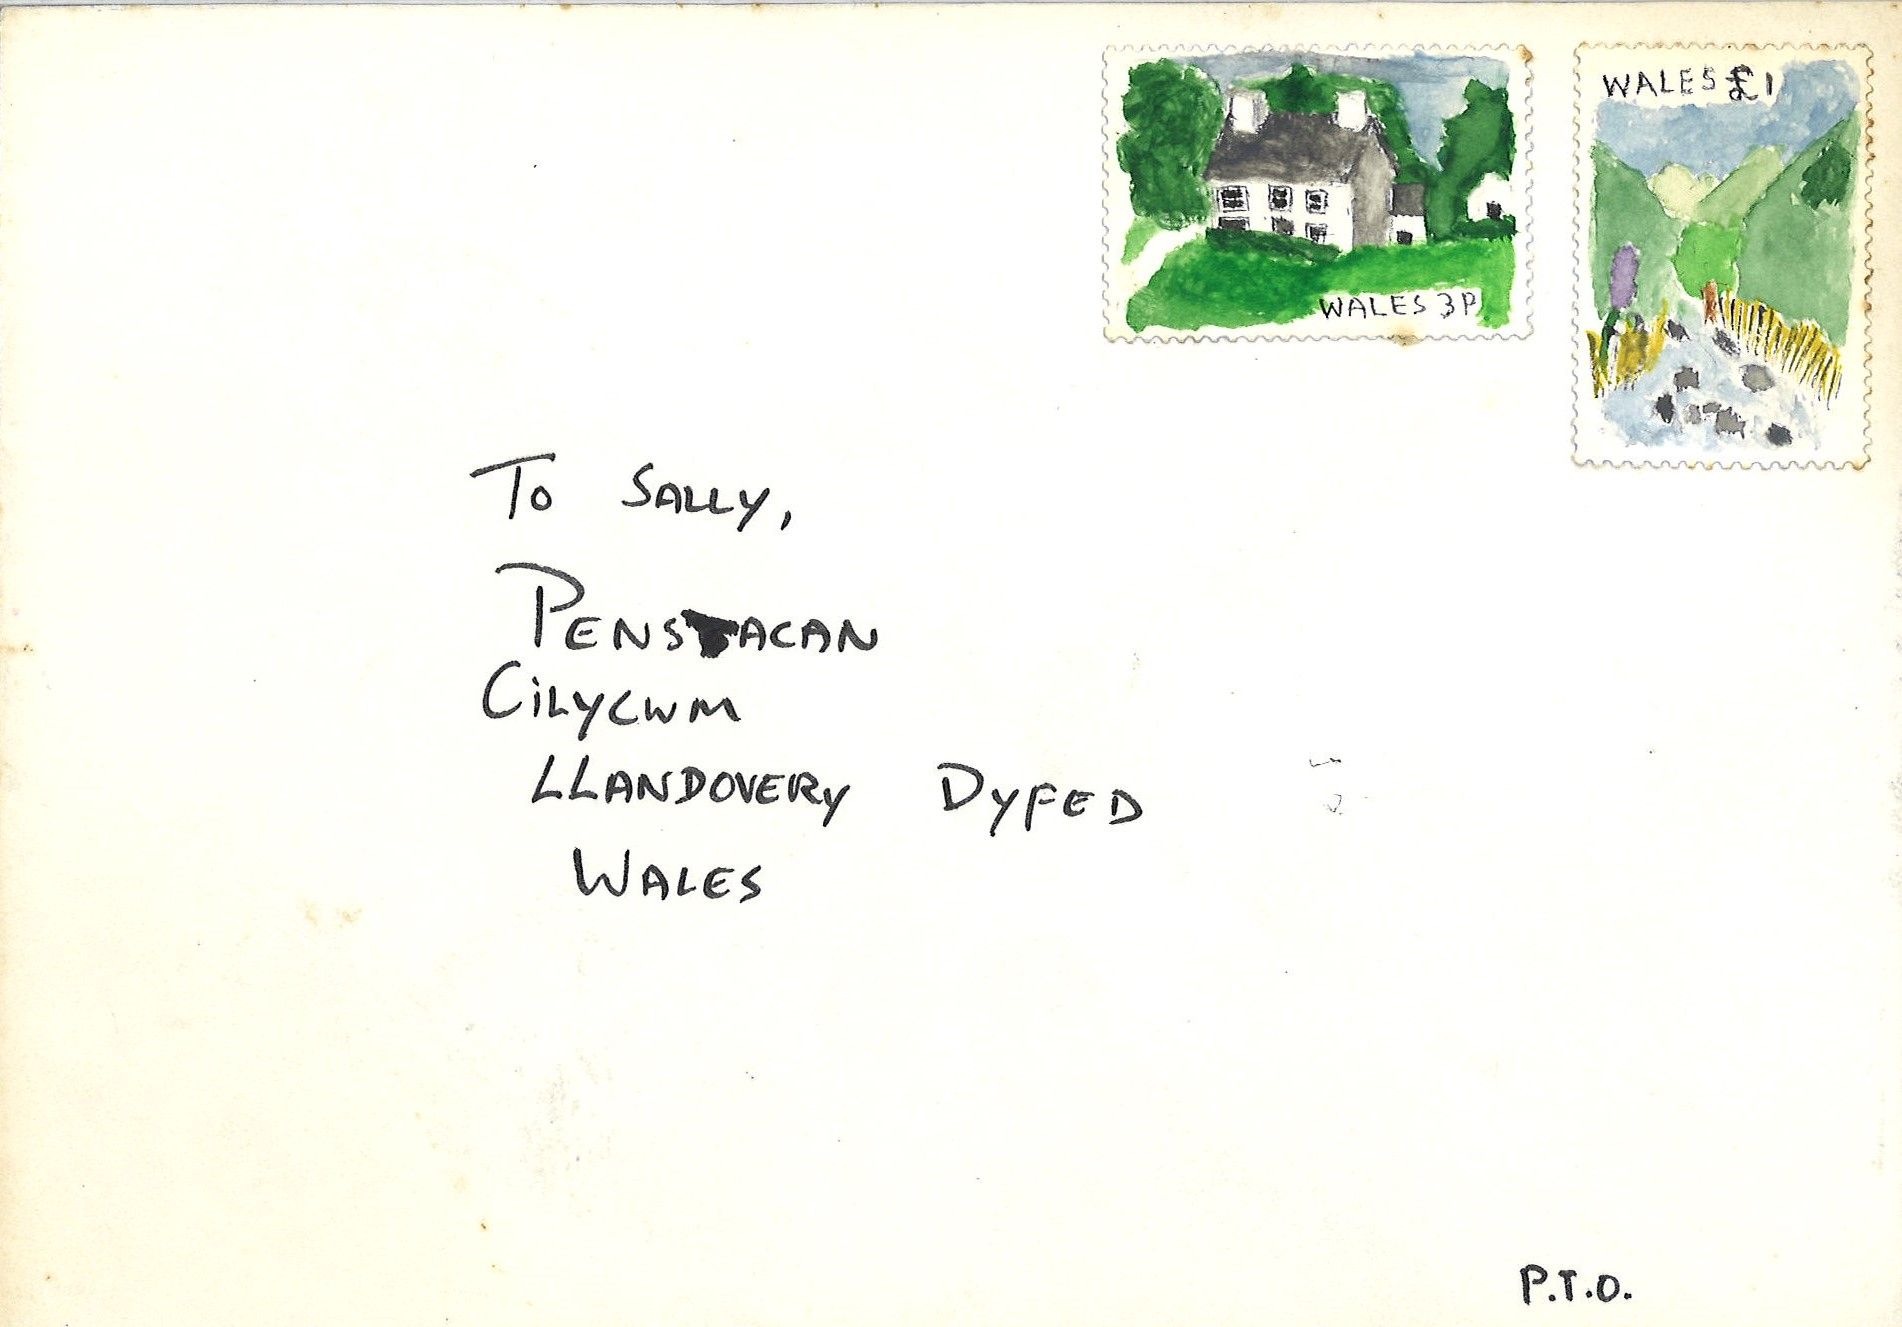 WALES £1
WALES 3P
To SALLY,
CILYCWM
LLANDOVERY DYFED
WALES
P.T.O.